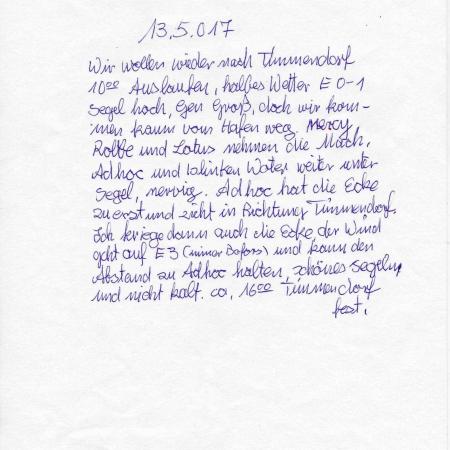 13.5.017
Wir wollen wieder nach Timmendorf
10⁰⁰ Auslaufen, halbes Wetter E 0-1
Segel hoch, Gen Groß, doch wir kom-
men kaum vom Hafen weg. Mercy
Robbe und Lotus nehmen die Masch,
Ad hoc und Water weiter unter
Segel, nervig. Ad hoc hat die Ecke
zuerst und zieht in Richtung Timmendorf.
Ich kriege dann auch die Ecke der Wind
geht auf E3 (immer Bafors) und kann den
Abstand zu Ad hoc halten, schönes Segeln
und nicht kalt. ca. 16⁰⁰ Timmendorf
fest.